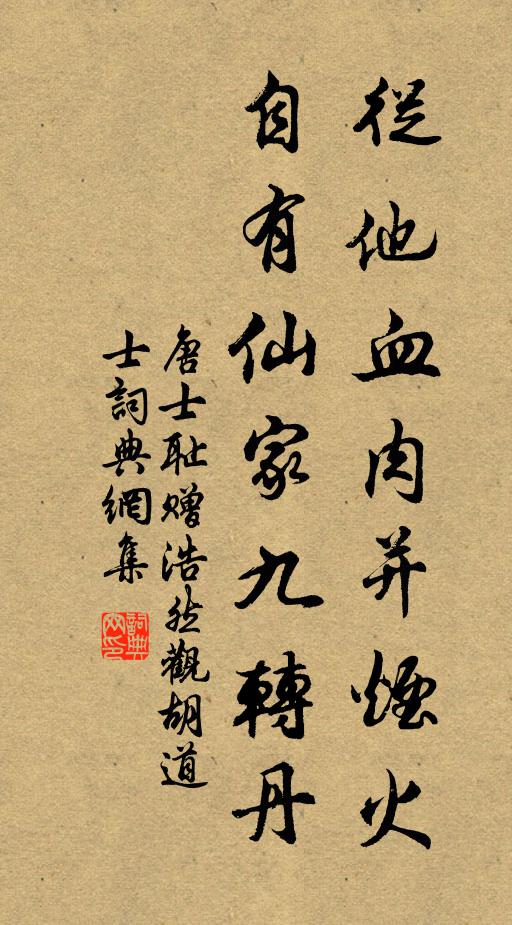 從他血肉并煙火
自有仙家九轉丹
唐士耻贈浩然觀胡道
士詞典網集
詞典網印